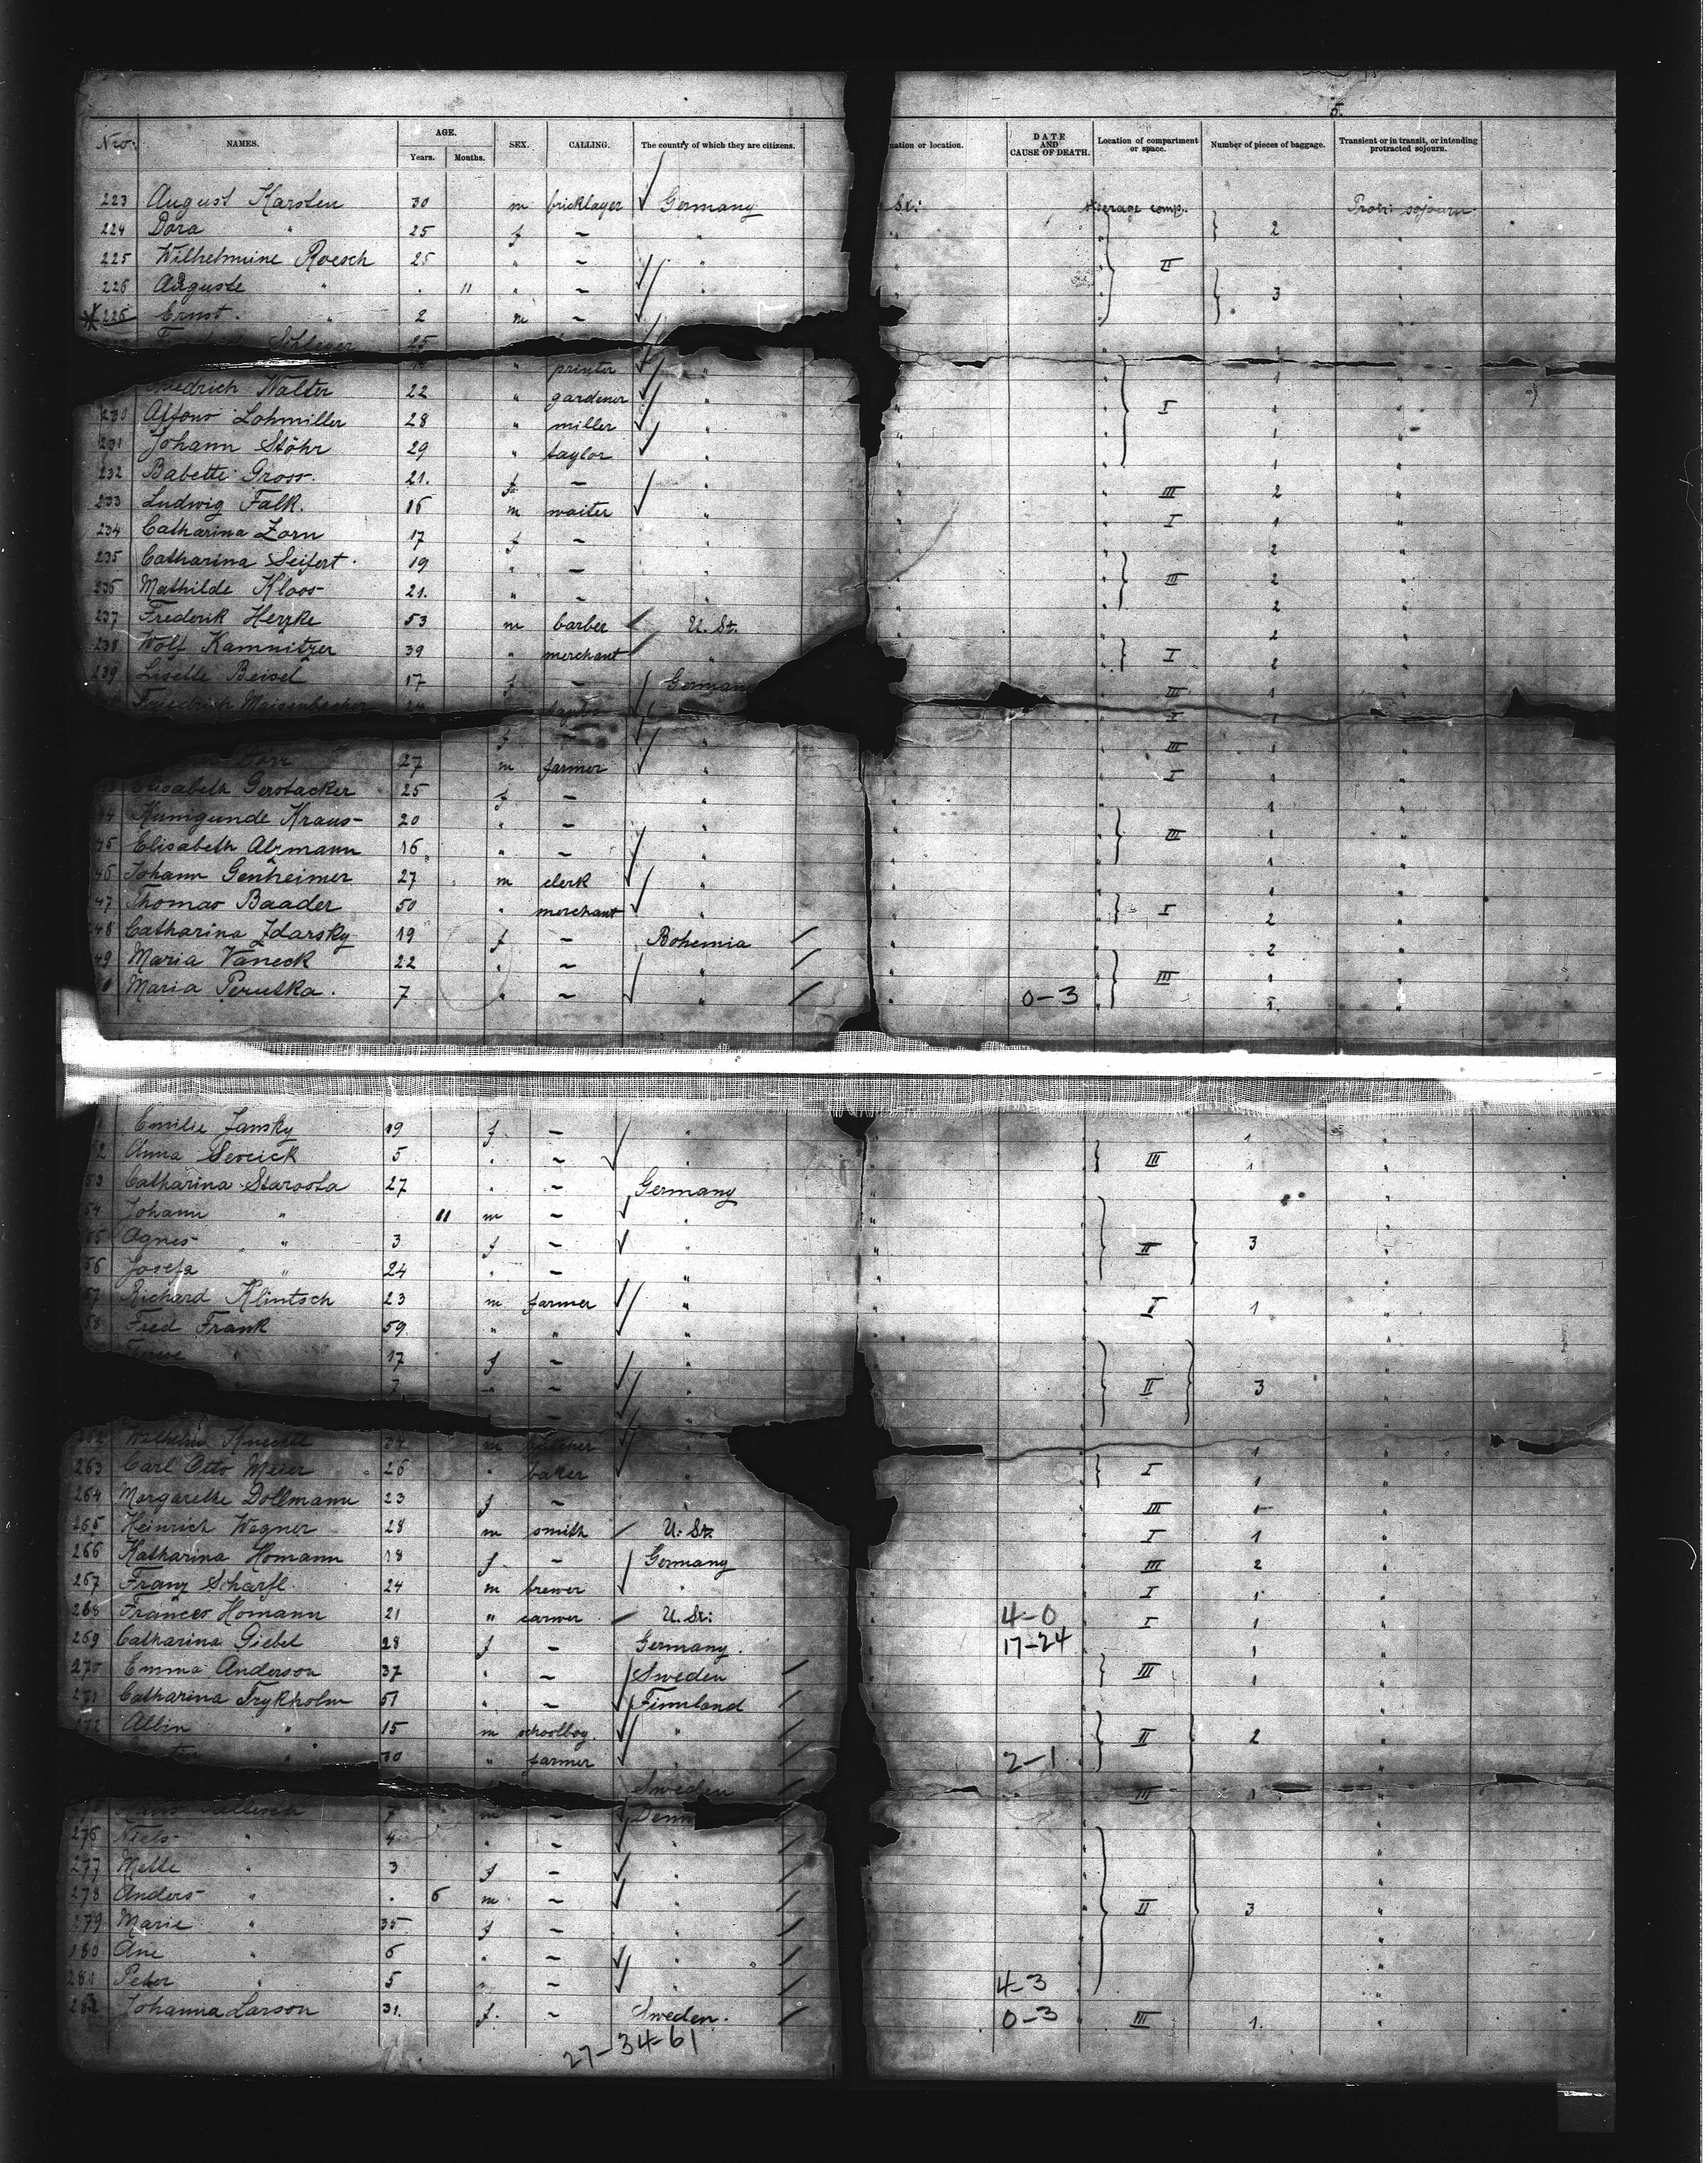 5.
Nro. NAMES. AGE. Years. Months. SEX. CALLING. The country of which they are citizens. nation or location. DATE AND CAUSE OF DEATH. Location of compartment or space. Number of pieces of baggage. Transient or in transit, or intending protracted sojourn.
223 August Karsten 30 m bricklayer Germany St: steerage comp. Protr: sojourn
224 Dora " 25 f — " " 2 "
225 Wilhelmine Roesch 25 " — " " II "
226 Auguste " . 11 " — " " 3 "
226 Ernst. " 2 m — "
Schlager 25
" printer " 1 "
Friedrich Walter 22 " gardener " " 1 "
230 Alfons Lohmiller 28 " miller " " I 1 "
231 Johann Stöhr 29 " taylor " " 1 "
232 Babette Gross 21. f — 1 "
233 Ludwig Falk. 16 m waiter " " III 2 "
234 Catharina Zorn 17 f — " I 1 "
235 Catharina Seifert 19 " — " " 2 "
236 Mathilde Kloos 21. " — " " III 2 "
237 Frederik Herzke 53 m barber U. St. " 2 "
238 Wolf Kamnitzer 39 " merchant " 2 "
239 Lisette Beisel 17 f — German I 2 "
Friedrich Maisenbacher III 1
f — I 1
Dörr 27 m farmer " III 1 "
Elisabeth Gerstacker 25 f — " I 1 "
44 Kunigunde Kraus 20 " — " " 1 "
45 Elisabeth Alzmann 16 " — " " III 1 "
46 Johann Genheimer 27 m clerk " " 1 "
47 Thomas Baader 50 " merchant " " 1 "
48 Catharina Zdarsky 19 f — Bohemia " I 2 "
49 Maria Vaneck 22 " — " " 2 "
Maria Perutka. 7 " — " " 0-3 III 1 "
1.
Emilie Jansky 19 f — " 1 "
2 Anna Sevcick 5 " — " III 1 "
53 Catharina Starosta 27 " — Germany "
54 Johann " . 11 m — " "
55 Agnes " 3 f — " " II 3 "
56 Josefa " 24 " — " "
57 Richard Klintsch 23 m farmer " " I 1 "
58 Fred Frank 59. " " " "
" 17 f — " "
7 " — " II 3 "
262 Wilhelm Knechtl 34 m butcher " 1 "
263 Carl Otto Meier 26 " baker " I 1 "
264 Margarethe Dollmann 23 f — " III "
265 Heinrich Wagner 28 m smith U. St. I 1 "
266 Katharina Homann 18 f — Germany III 2 "
267 Franz Scharfl 24 m brewer " I 1 "
268 Frances Homann 21 " carver U. St: 4-0 I 1 "
269 Catharina Giebel 28 f — Germany. 17-24 1 "
270 Emma Anderson 37 " — Sweden III 1 "
271 Catharina Trykholm 51 " — Finnland "
272 Albin " 15 m schoolboy. " II 2 "
" 10 " farmer 2-1 "
Sweden III 1 "
7 m — Denm
276 Niels " 4 " — " "
277 Mette " 3 f — " "
278 Anders " . 6 m — " II 3 "
279 Marie " 35 f — " "
280 Ane " 6 " — " "
281 Peter " 5 " — " 4-3 "
282 Johanna Larson 31. f. — Sweden. 0-3 III 1. "
27-34-61